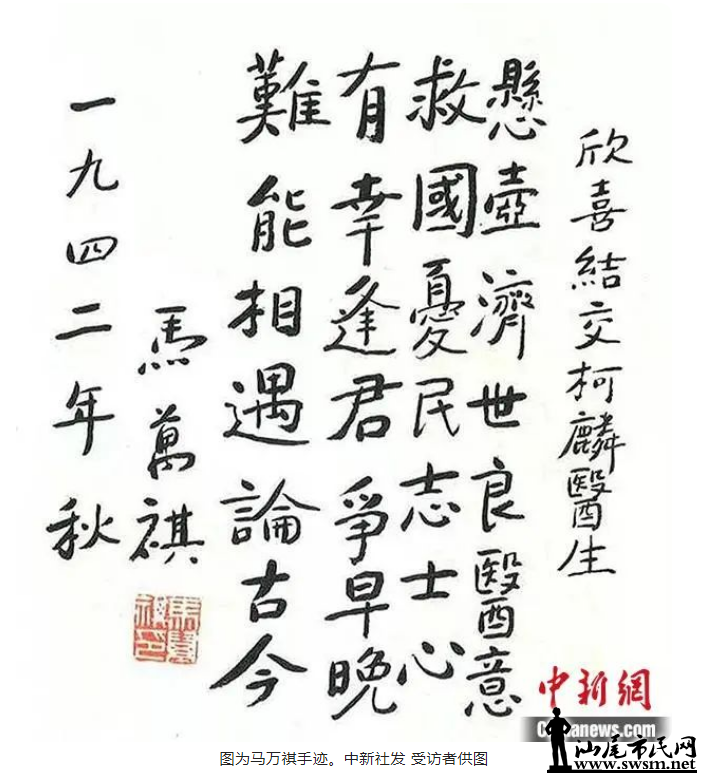 欣喜結交柯麟醫生
懸壺濟世良醫意
救國憂民志士心
有幸逢君爭早晚
難能相遇論古今
馬萬祺
一九四二年秋
中新網
Chinanews.com
汕尾市民网
www.swsm.net
图为马万祺手迹。中新社发 受访者供图